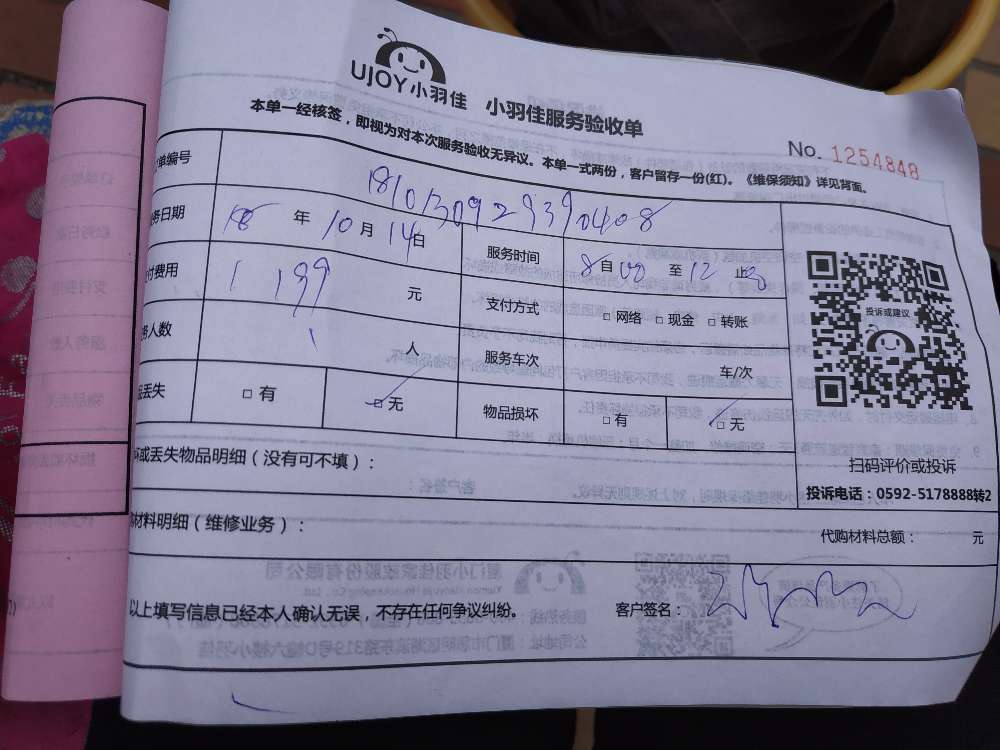 UJOY小羽佳 小羽佳服务验收单
本单一经核签，即视为对本次服务验收无异议。本单一式两份，客户留存一份(红)。《维保须知》详见背面。
No. 1254848
单编号 1810130929390408
务日期 18 年 10 月 14 日 服务时间 8 自 00 至 12 止
付费用 1199 元 支付方式 □ 网络 □ 现金 □ 转账
务人数 1 人 服务车次 车/次
丢失 □ 有 □ 无 物品损坏 □ 有 □ 无
投诉或建议
扫码评价或投诉
投诉电话：0592-5178888转2
或丢失物品明细（没有可不填）：
材料明细（维修业务）： 代购材料总额： 元
以上填写信息已经本人确认无误，不存在任何争议纠纷。 客户签名：